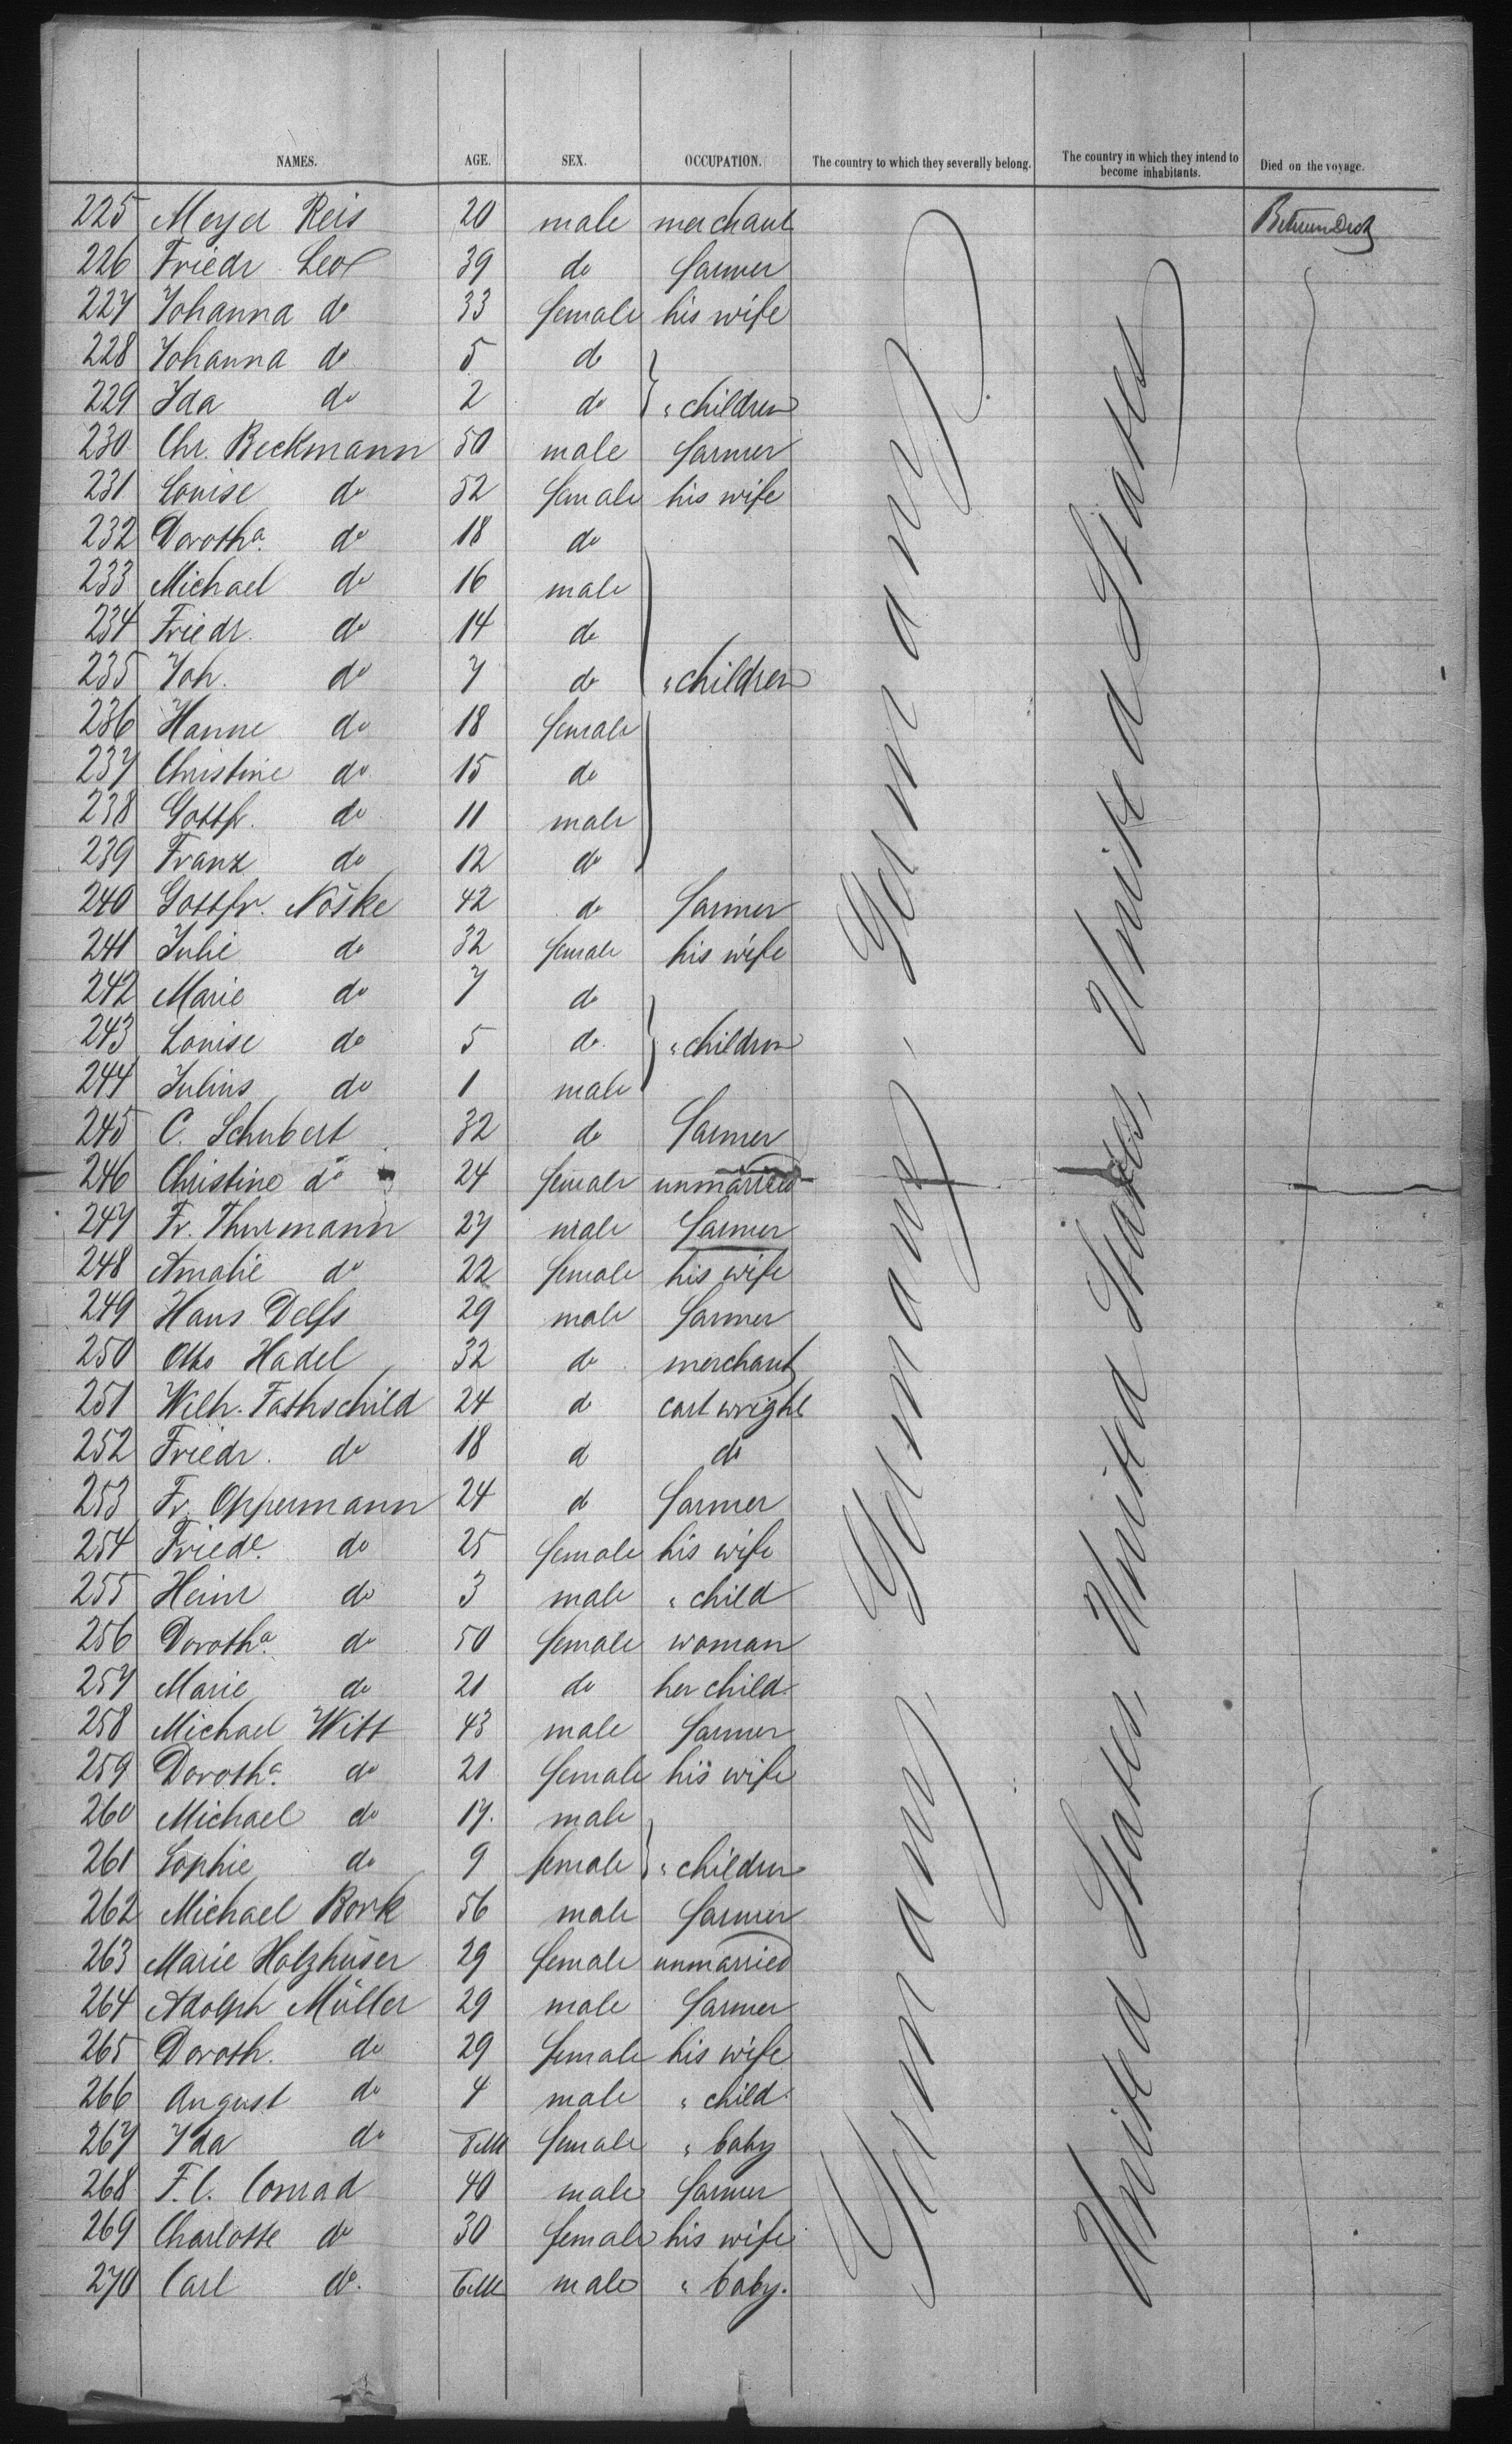 NAMES. AGE. SEX. OCCUPATION. The country to which they severally belong. The country in which they intend to become inhabitants. Died on the voyage.
225 Meyer Reis 20 male merchant
226 Friedr 39 do farmer
227 Johanna do 33 female his wife
228 Johanna do 5 do
229 Ida do 2 do " children
230 Chr. Beckmann 50 male farmer
231 Louise do 52 female his wife
232 Dorotha. do 18 do
233 Michael do 16 male
234 Friedr. do 14 do
235 Joh. do 7 do " children
236 Hanne do 18 female
237 Christine do 15 do
238 Gottfr. do 11 male
239 Franz do 12 do
240 Gottfr. Nöske 42 do farmer
241 Julie do 32 female his wife
242 Marie do 7 do
243 Louise do 5 do " children
244 Julius do 1 male
245 C. Schubert 32 do farmer
246 Christine do 24 female unmarried
247 Fr. Thurmann 27 male farmer
248 Amalie do 22 female his wife
249 Hans Delfs 29 male farmer
250 Otto Hadel 32 do merchant
251 Wilh. Fathschild 24 do cartwright
252 Friedr. do 18 do do
253 Fr. Oppermann 24 do farmer
254 Friede. do 25 female his wife
255 Heinr do 3 male " child
256 Dorotha. do 50 female woman
257 Marie do 21 do her child
258 Michael Witt 43 male farmer
259 Dorotha. do 21 female his wife
260 Michael do 17. male
261 Sophie do 9 female " children
262 Michael Bork 56 male farmer
263 Marie Holzhüser 29 female unmarried
264 Adolph Müller 29 male farmer
265 Doroth. do 29 female his wife
266 August do 4 male " child
267 Ida do female " baby
268 F. C. Conrad 40 male farmer
269 Charlotte do 30 female his wife
270 Carl do. male " baby.
Germany, Germany, Germany
United States, United States, United States